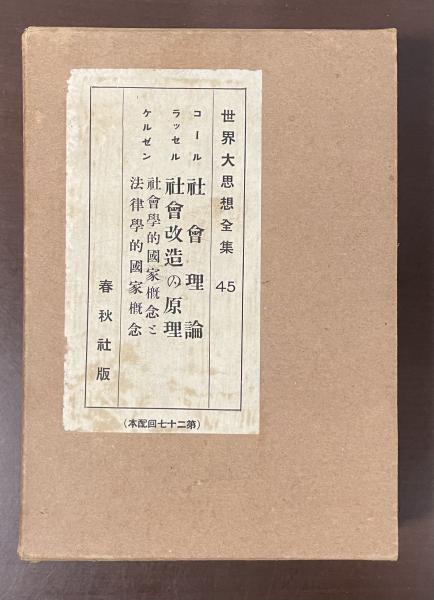 世界大思想全集 45
コール 社會理論
ラッセル 社會改造の原理
ケルゼン 社會學的國家概念と
法律學的國家概念
春秋社版
（第二十七回配本）